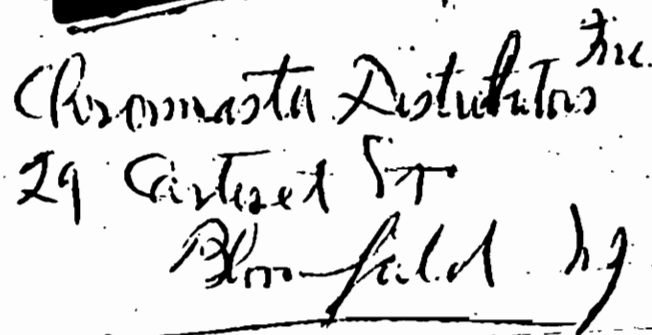 Chromasta Distributors Inc.
29 Carteret St
Bloomfield NJ